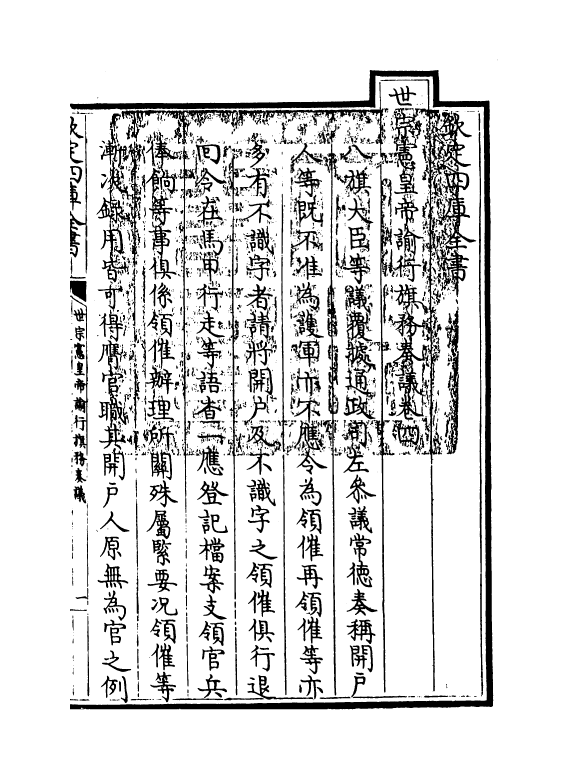 欽定四庫全書
世宗憲皇帝諭行旗務奏議卷四
八旗大臣等議覆據通政司左參議常德奏稱開戶
人等既不准為護軍亦不應令為領催再領催等亦
多有不識字者請將開戶及不識字之領催俱行退
回令在馬甲行走等語查一應登記檔案支領官兵
俸餉等事俱係領催辦理所關殊屬緊要况領催等
漸次錄用皆可得膺官職其開戶人原無為官之例
欽定四庫全書
世宗憲皇帝諭行旗務奏議
一